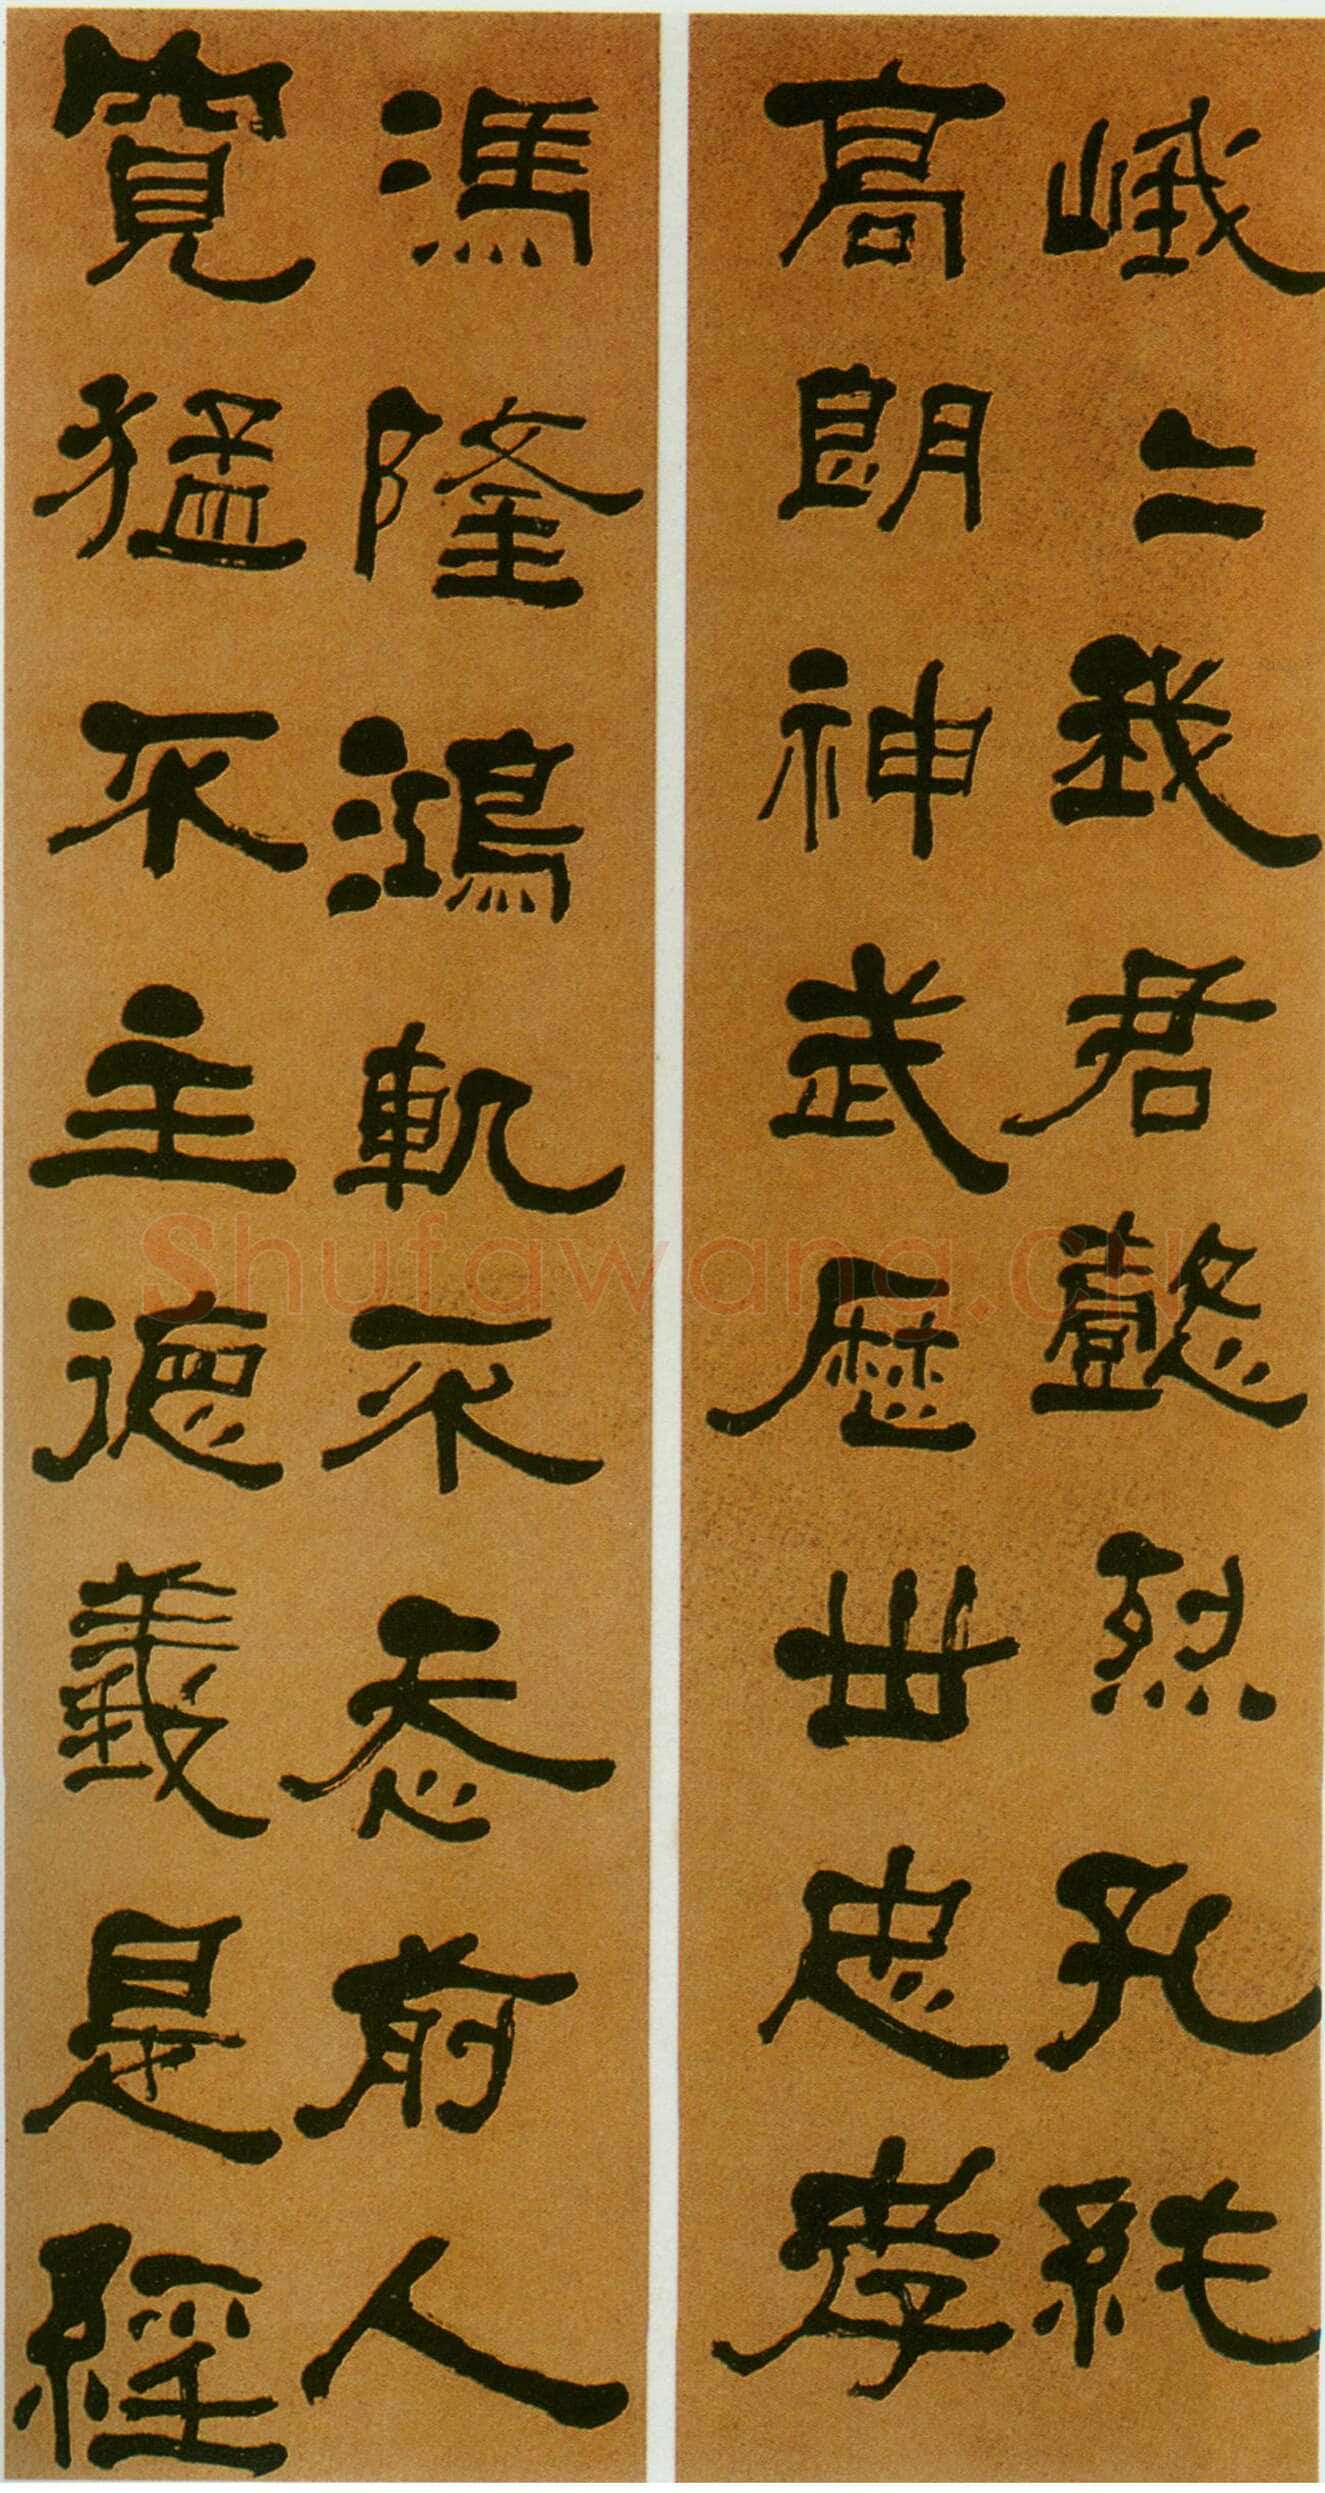 峨二我君懿烈孔純
高朗神武歷世忠孝
馮隆鴻軌不忝前人
寬猛不主德義是經
Shufawang.CN